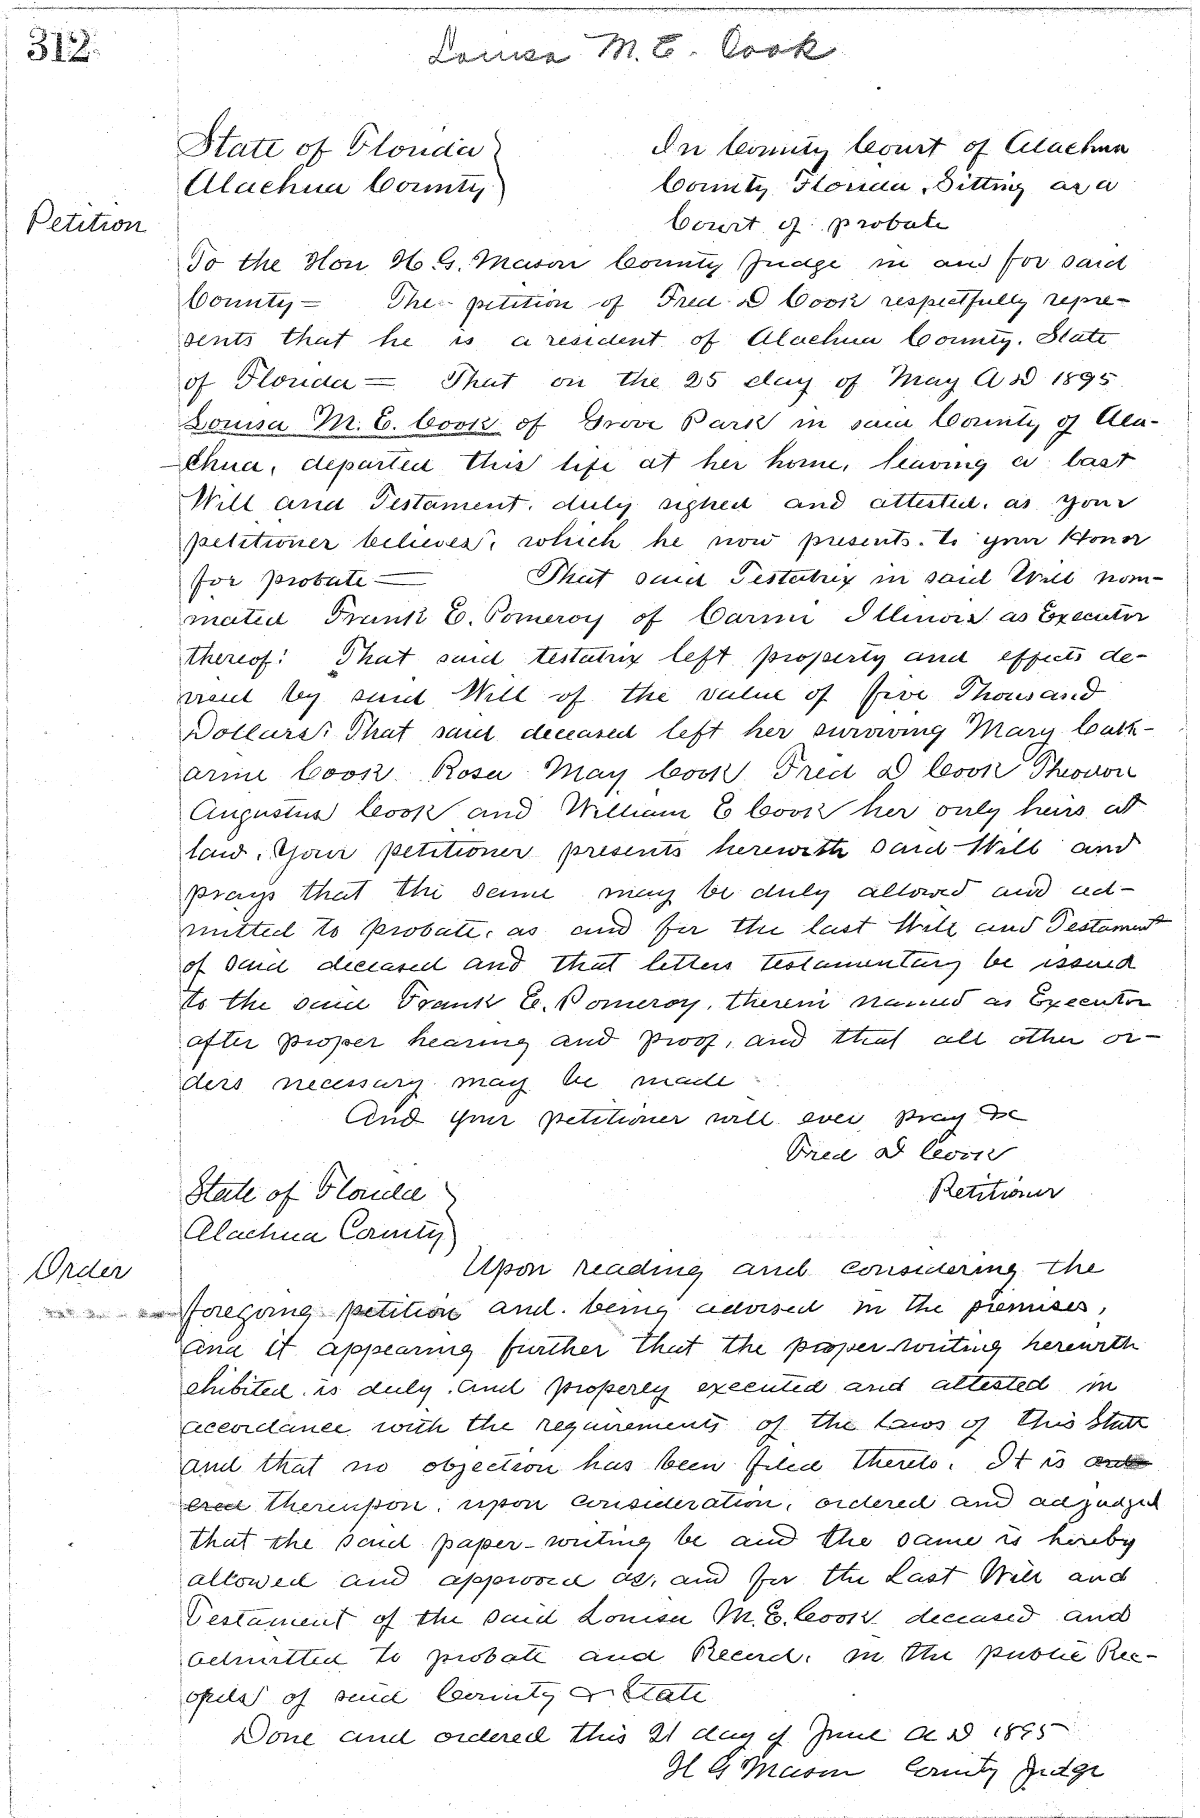 312
Louisa M. E. Cook
State of Florida
Alachua County
In County Court of Alachua
County, Florida, Sitting as a
Court of probate
Petition
To the Hon H. G. Mason County Judge in and for said
County = The petition of Fred D Cook respectfully repre-
sents that he is a resident of Alachua County, State
of Florida = That on the 25 day of May A D 1895
Louisa M. E. Cook of Grove Park in said County of Ala-
chua, departed this life at her home, leaving a last
Will and Testament, duly signed and attested, as your
petitioner believes, which he now presents to your Honor
for probate — That said Testatrix in said Will nom-
inated Frank E. Pomeroy of Carmi Illinois as Executor
thereof: That said testatrix left property and effects de-
vised by said Will of the value of five Thousand
Dollars: That said deceased left her surviving Mary Cath-
arine Cook Rosa May Cook Fred D Cook
Augustus Cook and William E Cook her only heirs at
law. Your petitioner presents herewith said Will and
prays that the same may be duly allowed and ad-
mitted to probate, as and for the last Will and Testament
of said deceased and that letters testamentary be issued
to the said Frank E. Pomeroy, therein named as Executor
after proper hearing and proof, and that all other or-
ders necessary may be made
And your petitioner will ever pray &c
Fred D Cook
Petitioner
State of Florida
Alachua County
Order
Upon reading and considering the
foregoing petition and being advised in the premises,
and it appearing further that the proper writing herewith
ehibited is duly and properly executed and attested in
accordance with the requirements of the Laws of this State
and that no objection has been filed thereto. It is ord
ered thereupon, upon consideration, ordered and adjudged
that the said paper-writing be and the same is hereby
allowed and approved as, and for the Last Will and
Testament of the said Louisa M. E. Cook deceased and
admitted to probate and Record, in the public Rec-
of said County & State
Done and ordered this 21 day of June A D 1895
H G Mason County Judge